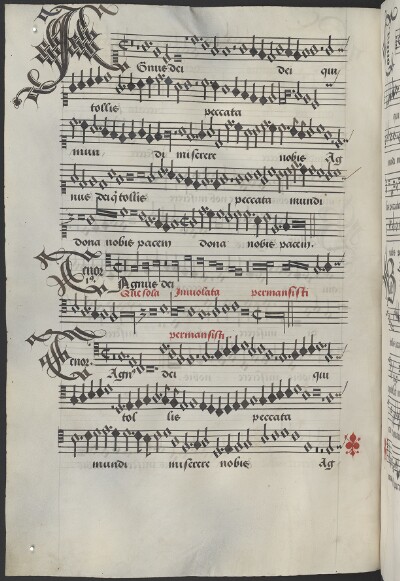 Agnus dei dei qui
tollis peccata
mun di miserere nobis Ag
nus dei q tollis peccata mundi
dona nobis pacem dona nobis pacem.
Tenor Agnus dei
Que sola Inviolata permansisti
permansisti
Tenor Agn9 dei qui
tol lis peccata
mundi miserere nobis Ag